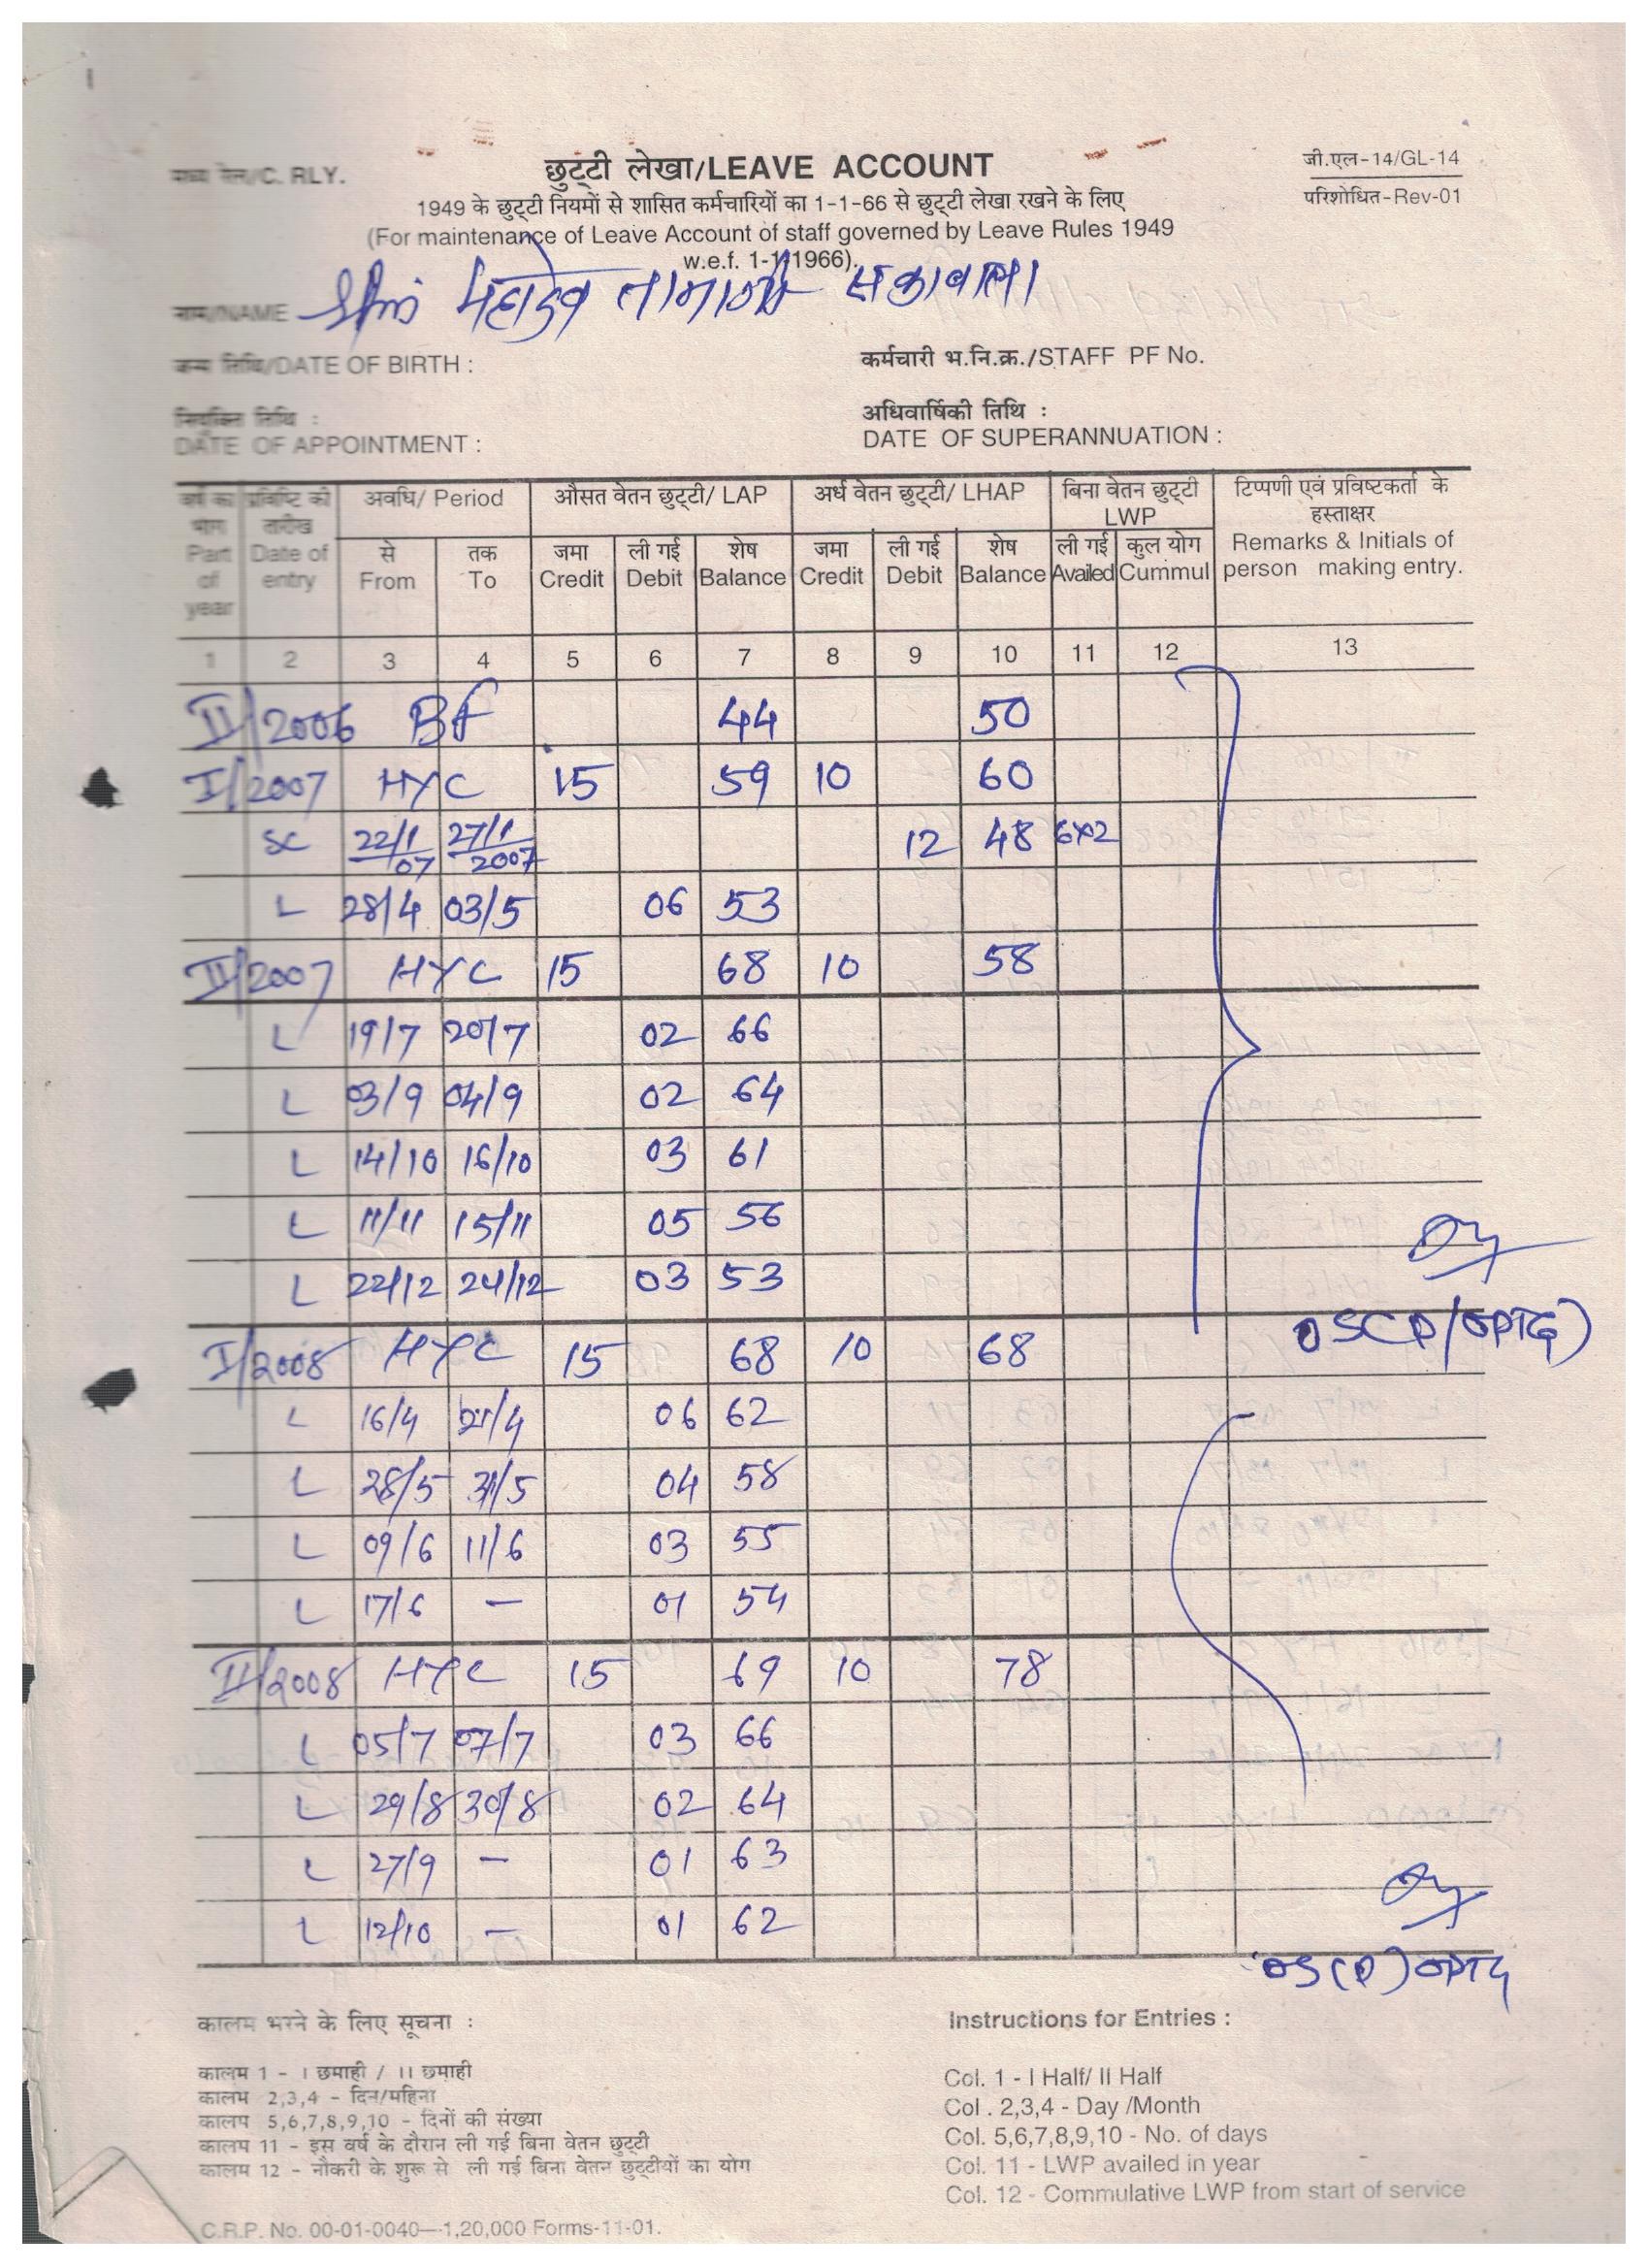 मध्य रेल/C. RLY.
छुट्टी लेखा/LEAVE ACCOUNT
जी.एल-14/GL-14
परिशोधित-Rev-01
1949 के छुट्टी नियमों से शासित कर्मचारियों का 1-1-66 से छुट्टी लेखा रखने के लिए
(For maintenance of Leave Account of staff governed by Leave Rules 1949
w.e.f. 1-1-1966).
नाम/NAME Shri महादेव तानाजी सकावाला
जन्म तिथि/DATE OF BIRTH :
कर्मचारी भ.नि.क्र./STAFF PF No.
नियुक्ति तिथि :
DATE OF APPOINTMENT :
अधिवार्षिकी तिथि :
DATE OF SUPERANNUATION :
वर्ष का भाग Part of year
प्रविष्टि की तारीख Date of entry
अवधि/ Period
औसत वेतन छुट्टी/ LAP
अर्ध वेतन छुट्टी/ LHAP
बिना वेतन छुट्टी LWP
टिप्पणी एवं प्रविष्टकर्ता के हस्ताक्षर Remarks & Initials of person making entry.
से From तक To जमा Credit ली गई Debit शेष Balance जमा Credit ली गई Debit शेष Balance ली गई Availed कुल योग Cummul
1 2 3 4 5 6 7 8 9 10 11 12 13
II/2006 BF 44 50
I/2007 HYC 15 59 10 60
SC 22/1/07 27/1/2007 12 48 6x2
L 28/4 03/5 06 53
II/2007 HYC 15 68 10 58
L 19/7 20/7 02 66
L 03/9 04/9 02 64
L 14/10 16/10 03 61
L 11/11 15/11 05 56
L 22/12 24/12 03 53
OSCP/OPTG)
I/2008 HYC 15 68 10 68
L 16/4 21/4 06 62
L 28/5 31/5 04 58
L 09/6 11/6 03 55
L 17/6 — 01 54
II/2008 HYC 15 69 10 78
L 05/7 07/7 03 66
L 29/8 30/8 02 64
L 27/9 — 01 63
L 12/10 — 01 62
OS(P)OPTG
कालम भरने के लिए सूचना :
कालम 1 - I छमाही / II छमाही
कालम 2,3,4 - दिन/महिना
कालम 5,6,7,8,9,10 - दिनों की संख्या
कालम 11 - इस वर्ष के दौरान ली गई बिना वेतन छुट्टी
कालम 12 - नौकरी के शुरू से ली गई बिना वेतन छुट्टीयों का योग
Instructions for Entries :
Col. 1 - I Half/ II Half
Col . 2,3,4 - Day /Month
Col. 5,6,7,8,9,10 - No. of days
Col. 11 - LWP availed in year
Col. 12 - Commulative LWP from start of service
C.R.P. No. 00-01-0040—1,20,000 Forms-11-01.